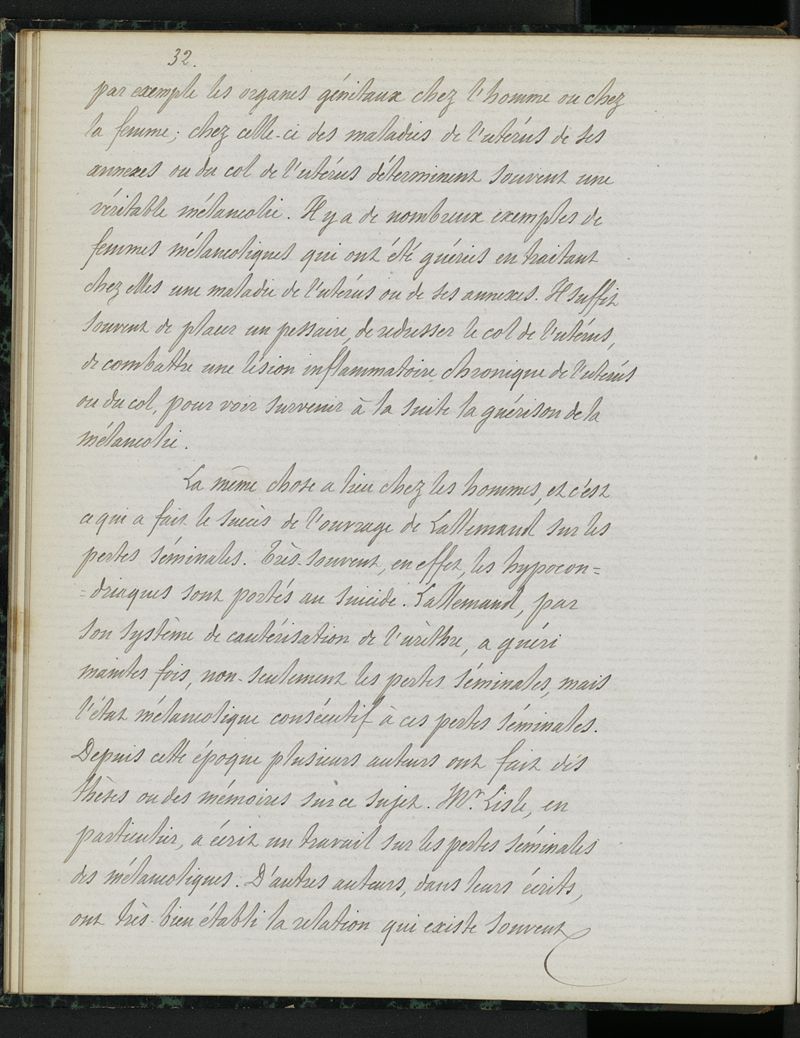 32.
par exemple les organes génitaux chez l'homme ou chez
la femme; chez celle-ci des maladies de l'utérus de ses
annexes ou du col de l'utérus déterminent souvent une
véritable mélancolie. Il y a de nombreux exemples de
femmes mélancoliques qui ont été guéries en traitant
chez elles une maladie de l'utérus ou de ses annexes. Il suffit
souvent de placer un pessaire, de redresser le col de l'utérus,
de combattre une lésion inflammatoire chronique de l'utérus
ou du col, pour voir survenir à la suite la guérison de la
mélancolie.
La même chose a lieu chez les hommes, et c'est
ce qui a fait le succès de l'ouvrage de Lallemand sur les
pertes séminales. Très souvent, en effet, les hypocon=
=driaques sont portés au suicide. Lallemand, par
son système de cautérisation de l'urèthre, a guéri
maintes fois, non-seulement les pertes séminales, mais
l'état mélancolique consécutif à ces pertes séminales.
Depuis cette époque plusieurs auteurs ont fait des
thèses ou des mémoires sur ce sujet. Mr. Lisle, en
particulier, a écrit un travail sur les pertes séminales
des mélancoliques. D'autres auteurs, dans leurs écrits,
ont très-bien établi la relation qui existe souvent